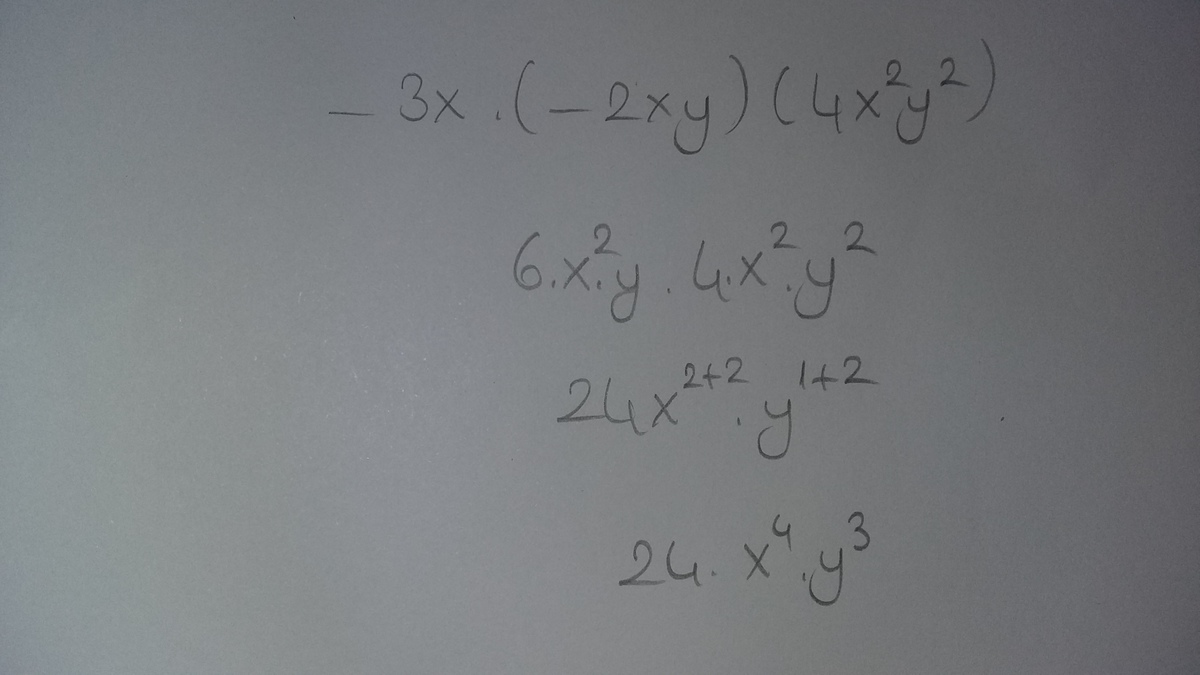 - 3x . (-2xy) (4x²y²)
6.x².y . 4.x².y²
24x²⁺² . y¹⁺²
24. x⁴.y³